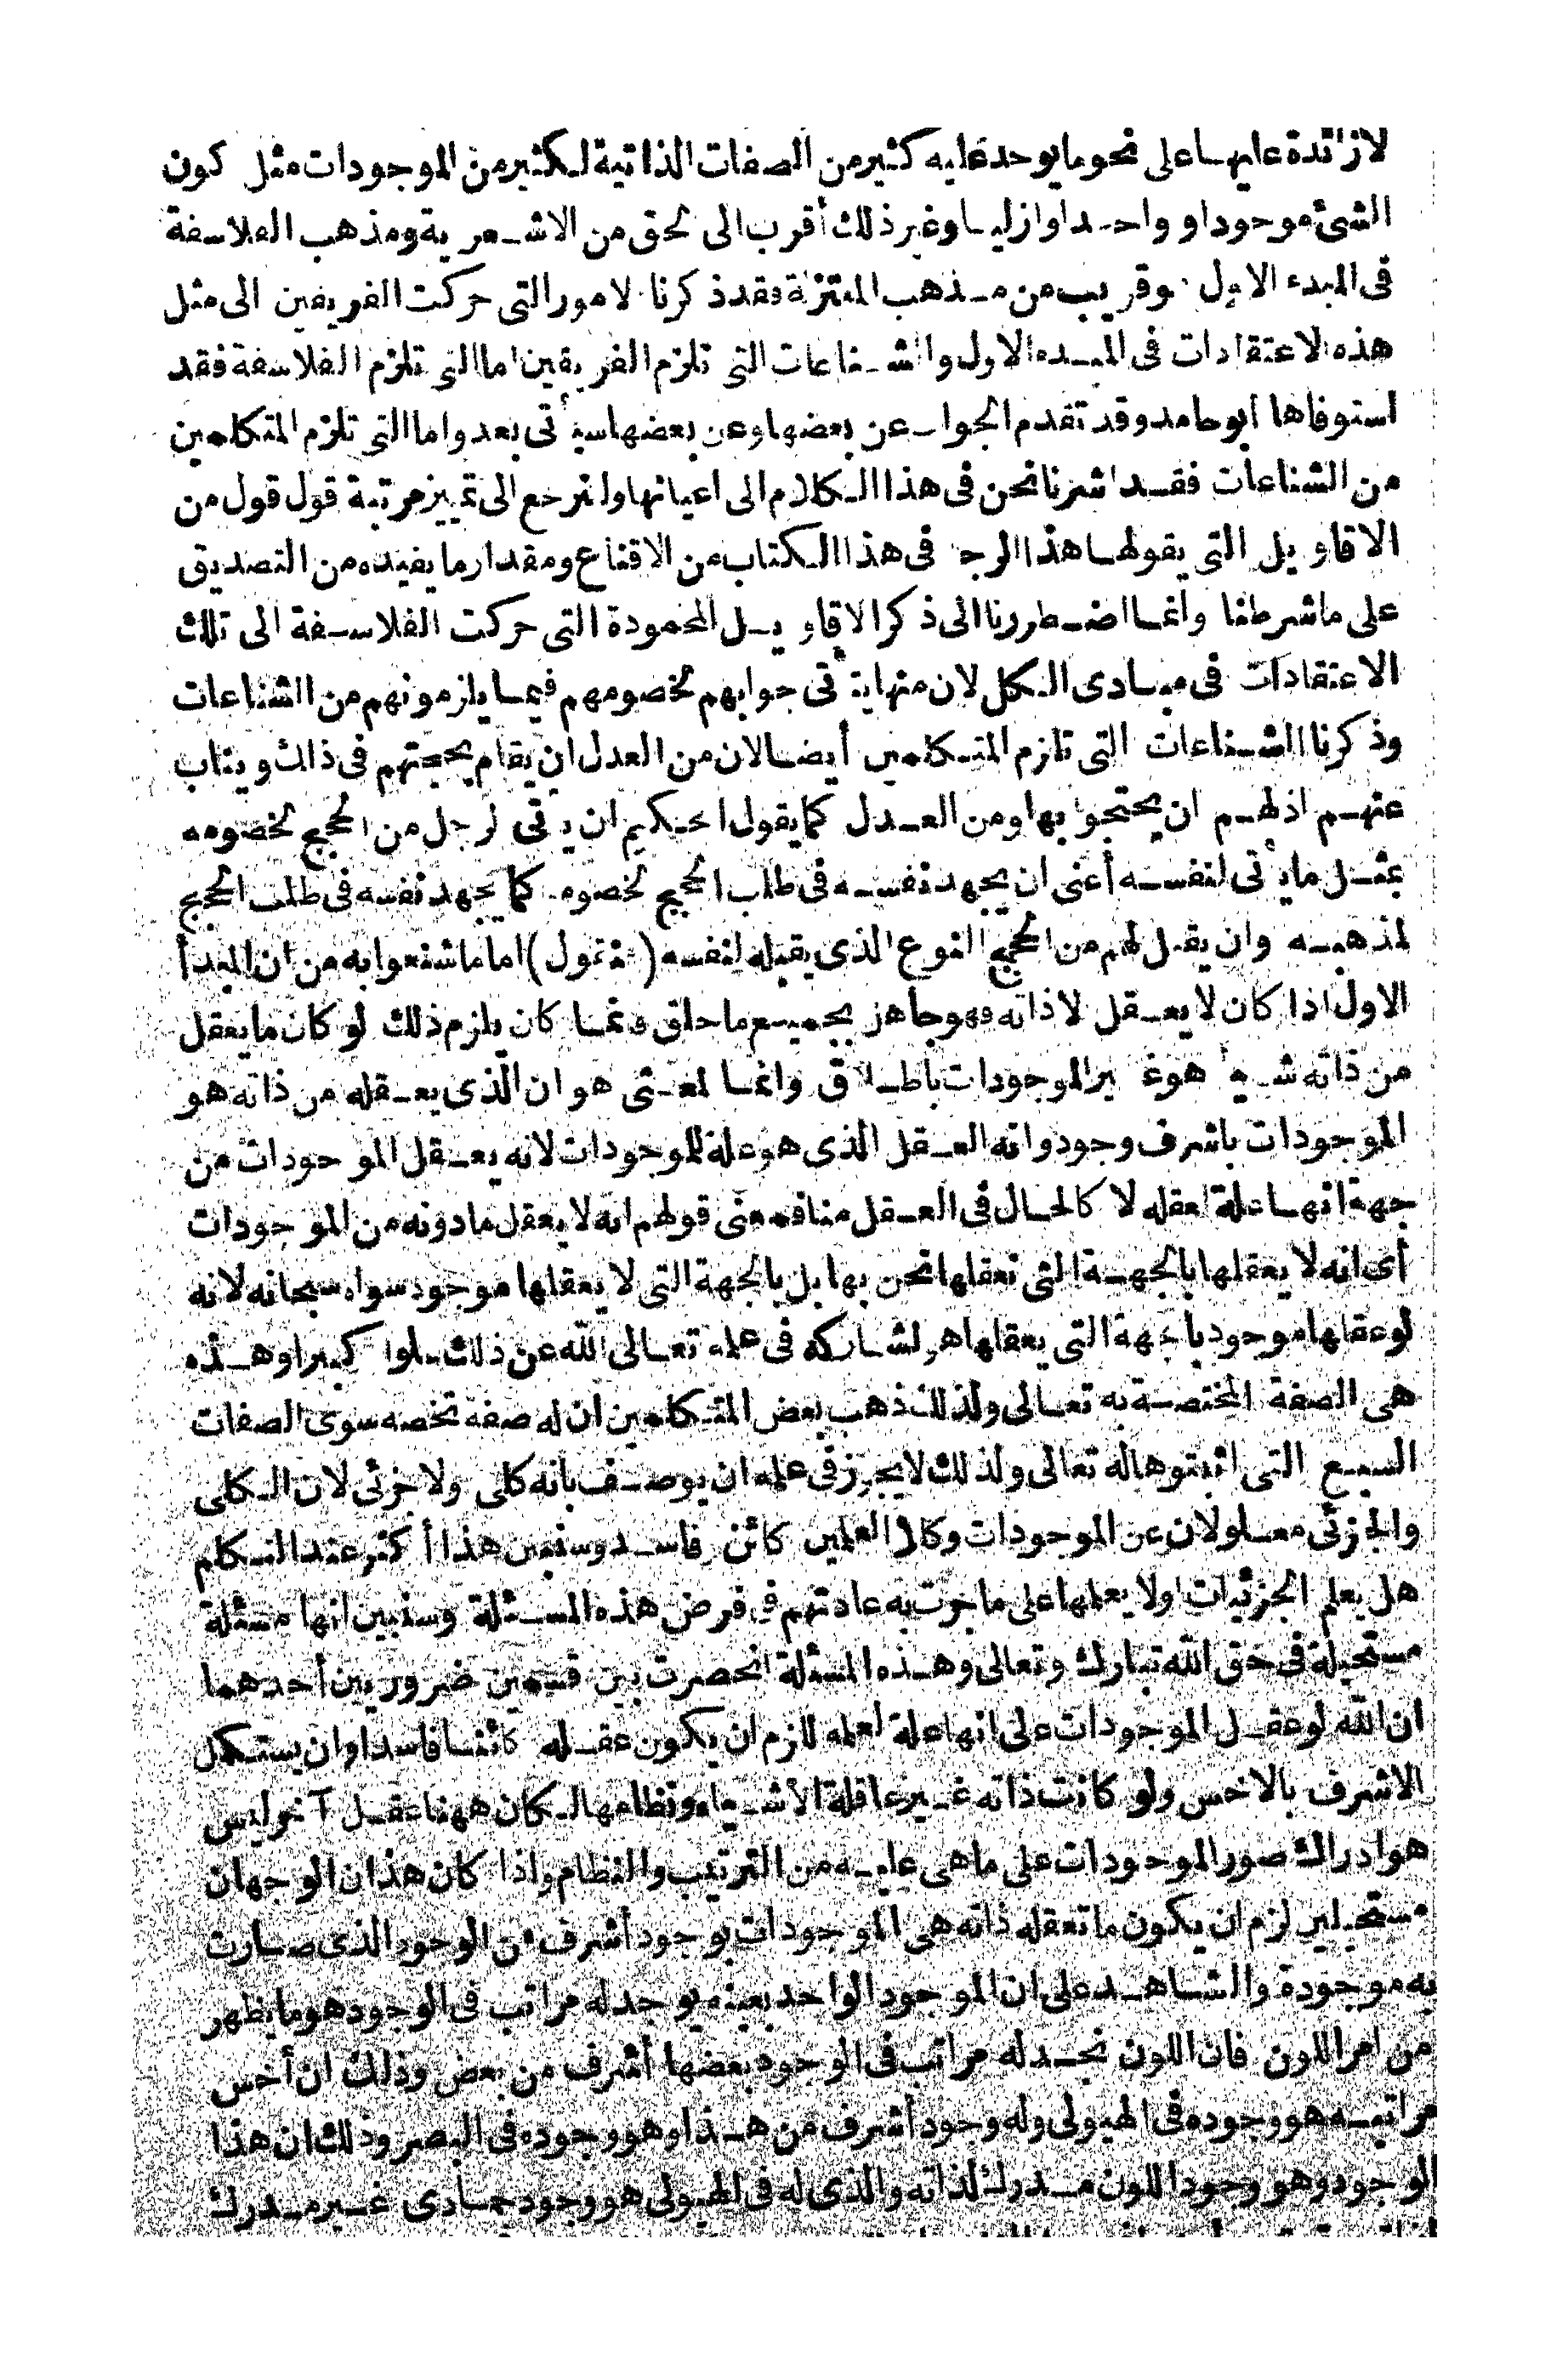 لازائدة عليها على نحو ما يوحد عليه كثير من الصفات الذاتية لكثير من الموجودات مثل كون
الشئ موجودا و واحدا وازليا وغير ذلك أقرب الى لحق من الاشعرية ومذهب الفلاسفة
فى المبدء الاول وقريب من مذهب المعتزلة فقد ذكرنا لامور التى حركت الفريقين الى مثل
هذه الاعتقادات فى المبدء الاول والشناعات التى تلزم الفريقين اما التى تلزم الفلاسفة فقد
استوفاها ابو حامد وقد تقدم الجواب عن بعضها وعن بعضها سيأتى بعد واما التى تلزم المتكلمين
من الشناعات فقد اشرنا نحن فى هذا الكلام الى اعيانها ولنرجع الى تمييز مرتبة قول قول من
الاقاويل التى يقولها هذا الرجل فى هذا الكتاب من الاقناع ومقدار ما يفيده من التصديق
على ما شرطنا وانما اضطررنا الى ذكر الاقاويل المحمودة التى حركت الفلاسفة الى تلك
الاعتقادات فى مبادى الكل لان منها يتأتى جوابهم لخصومهم فيما يلزمونهم من الشناعات
وذكرنا الشناعات التى تلزم المتكلمين أيضا لان من العدل ان يقام بحجتهم فى ذلك ويناب
عنهم اذ لهم ان يحتجوا بها ومن العدل كما يقول الحكيم ان يأتى لرجل من الحجج لخصومه
بمثل ما يأتى لنفسه أعنى ان يجهد نفسه فى طلب الحجج لخصومه كما يجهد نفسه فى طلب الحجج
لمذهبه وان يقبل لهم من الحجج النوع الذى يقبله لنفسه (فنقول) اما ما شنعوا به من ان المبدأ
الاول اذا كان لا يعقل لا ذاته فهو جاهل بجميع ما خلق فانما كان يلزم ذلك لو كان ما يعقل
من ذاته شيأ هو غير الموجودات باطلاق وانما لمعنى هو ان الذى يعقله من ذاته هو
الموجودات باشرف وجود وانه العقل الذى هو علة للموجودات لانه يعقل الموجودات من
جهة انها علة لعقله لا كالحال فى العقل منا فمعنى قولهم انه لا يعقل ما دونه من الموجودات
أى انه لا يعقلها بالجهة التى نعقلها نحن بها بل بالجهة التى لا يعقلها موجود سواه سبحانه لانه
لو عقلها موجود بالجهة التى يعقلها هو لشاركه فى علمه تعالى الله عن ذلك علوا كبيرا وهذه
هى الصفة المختصة به تعالى ولذلك ذهب بعض المتكلمين ان له صفة تخصه سوى الصفات
السبع التى اثبتوها له تعالى ولذلك لا يجوز فى علمه ان يوصف بانه كلى ولا جزئى لان الكلى
والجزئى معلولان عن الموجودات وكلا العلمين كائن فاسد وسنبين هذا أكثر عند التكلم
هل يعلم الجزئيات اولا يعلمها على ما جرت به عادتهم فى فرض هذه المسئلة وسنبين انها مسئلة
مستحيلة فى حق الله تبارك وتعالى وهذه المسئلة انحصرت بين قسمين ضروريين أحدهما
ان الله لو عقل الموجودات على انها علة لعلمه للزم ان يكون عقله كائنا فاسدا وان يستكمل
الاشرف بالاخس ولو كانت ذاته غير عاقلة الأشياء ونظامها لكان ههنا عقل آخر ليس
هو ادراك صور الموجودات على ما هى عليه من الترتيب والنظام واذا كان هذان الوجهان
مستحيلين لزم ان يكون ما تعقله ذاته هى الموجودات بوجود أشرف من الوجود الذى صارت
به موجودة والشاهد على ان الموجود الواحد بعينه يوجد له مراتب فى الوجود هو ما يظهر
من امر اللون فان اللون نجد له مراتب فى الوجود بعضها أشرف من بعض وذلك ان أخس
مراتبه هو وجوده فى الهيولى وله وجود أشرف من هذا وهو وجوده فى البصر وذلك ان هذا
الوجود وهو وجود اللون مدرك لذاته والذى له فى الهيولى هو وجود جمادى غير مدرك